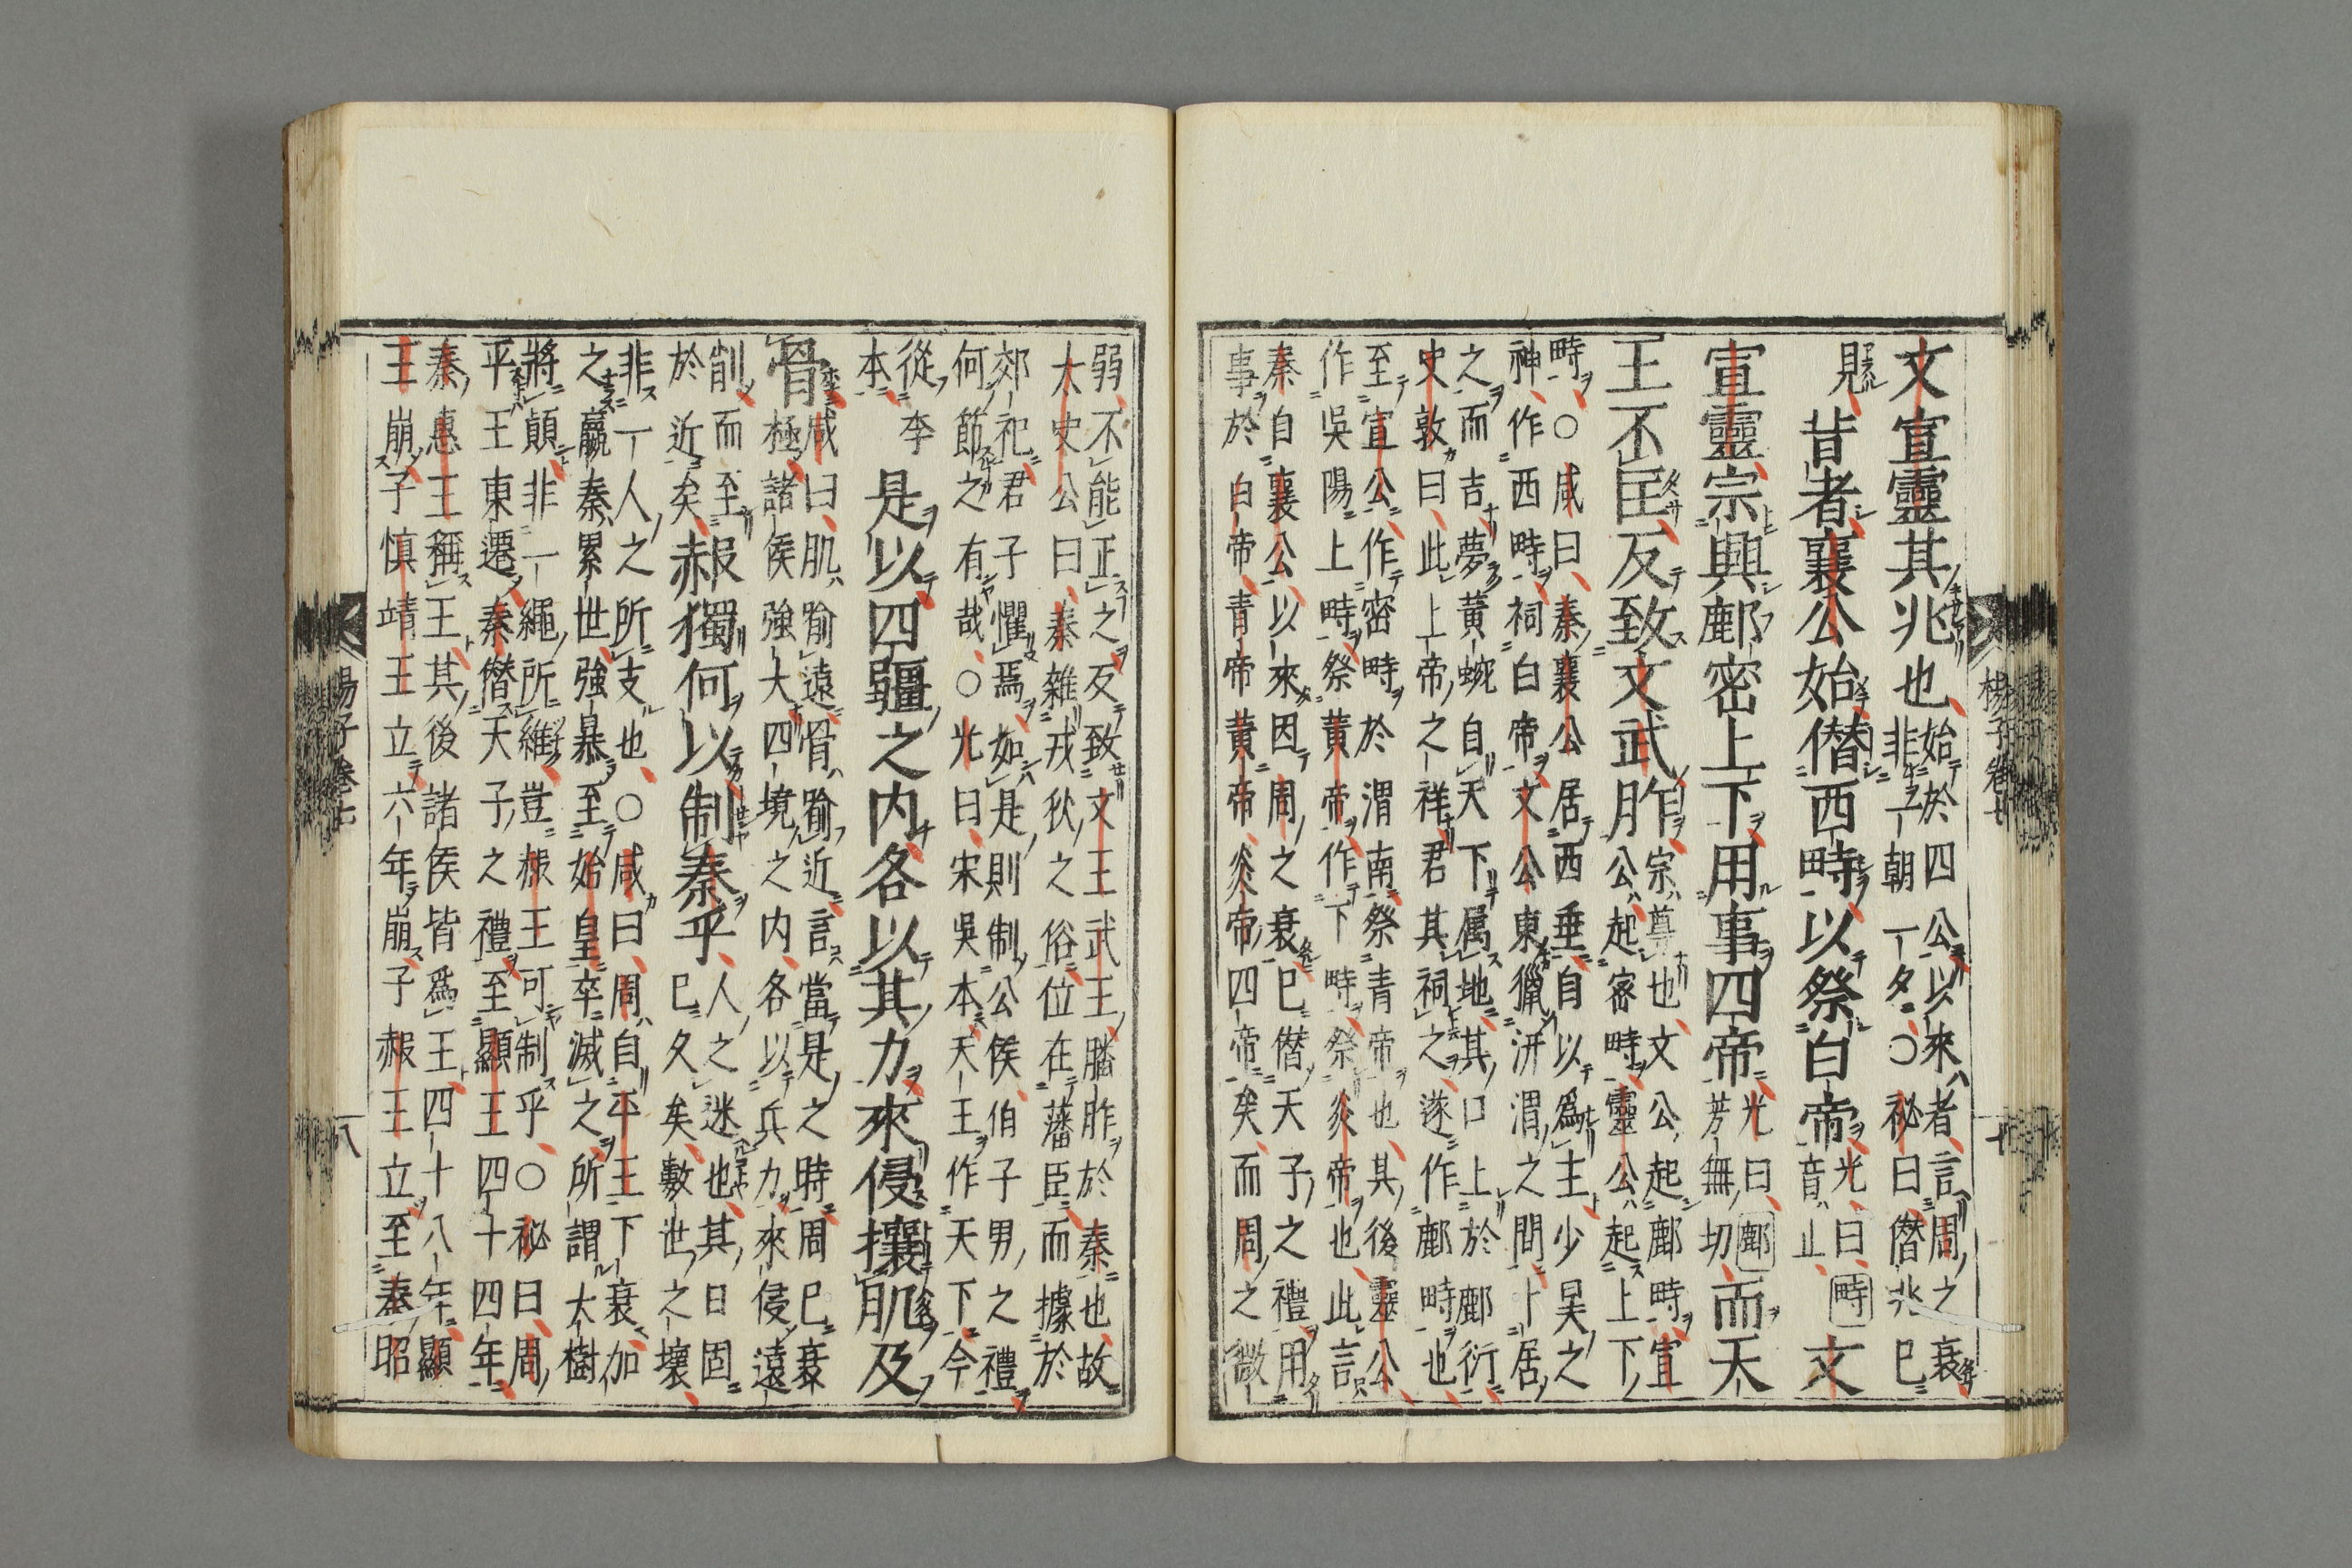 文宣靈其兆也
始於四公以來者言周之衰
非一朝一夕〇祕曰僭兆已
見
昔者襄公始僭西畤以祭白帝
光曰畤
音止
文
宣靈宗興鄜密上下用事四帝
光曰鄜
芳無切
而天
王不匡反致文武胙
宗尊也文公起鄜畤宣
月公起密畤靈公起上下
畤〇咸曰秦襄公居西垂自以爲主少昊之
神作西畤祠白帝文公東獵汧渭之間卜居
之而吉夢黃蛇自天下属地其口上於鄜衍
史敦曰此上帝之祥君其祠之遂作鄜畤也
至宣公作密畤於渭南祭青帝也其後靈公
作吳陽上畤祭黃帝作下畤祭炎帝也此言
秦自襄公以來因周之衰已僭天子之禮用
事於白帝青帝黃帝炎帝四帝矣而周之微
楊子卷七
弱不能正之反致文王武王膰胙於秦也故
太史公曰秦雜戎狄之俗位在藩臣而據於
郊祀君子懼焉如是則制公侯伯子男之禮
何節之有哉〇光曰宋吳本天王作天下今
從李
本
是以四疆之内各以其力來侵攘肌及
骨
咸曰肌踰遠骨踰近言當是之時周已衰
極諸侯強大四境之内各以兵力來侵遠
削而至
於近矣
赧獨何以制秦乎
人之迷也其日固
已久矣數世之壞
非一人之所支也〇咸曰周自平王下衰加
之嬴秦累世強暴至始皇卒滅之所謂太樹
將顛非一繩所維豈赧王可制乎〇祕曰周
平王東遷秦僭天子之禮至顯王四十四年
秦惠王稱王其後諸侯皆爲王四十八年顯
王崩子慎靖王立六年崩子赧王立至秦昭
楊子卷七
八